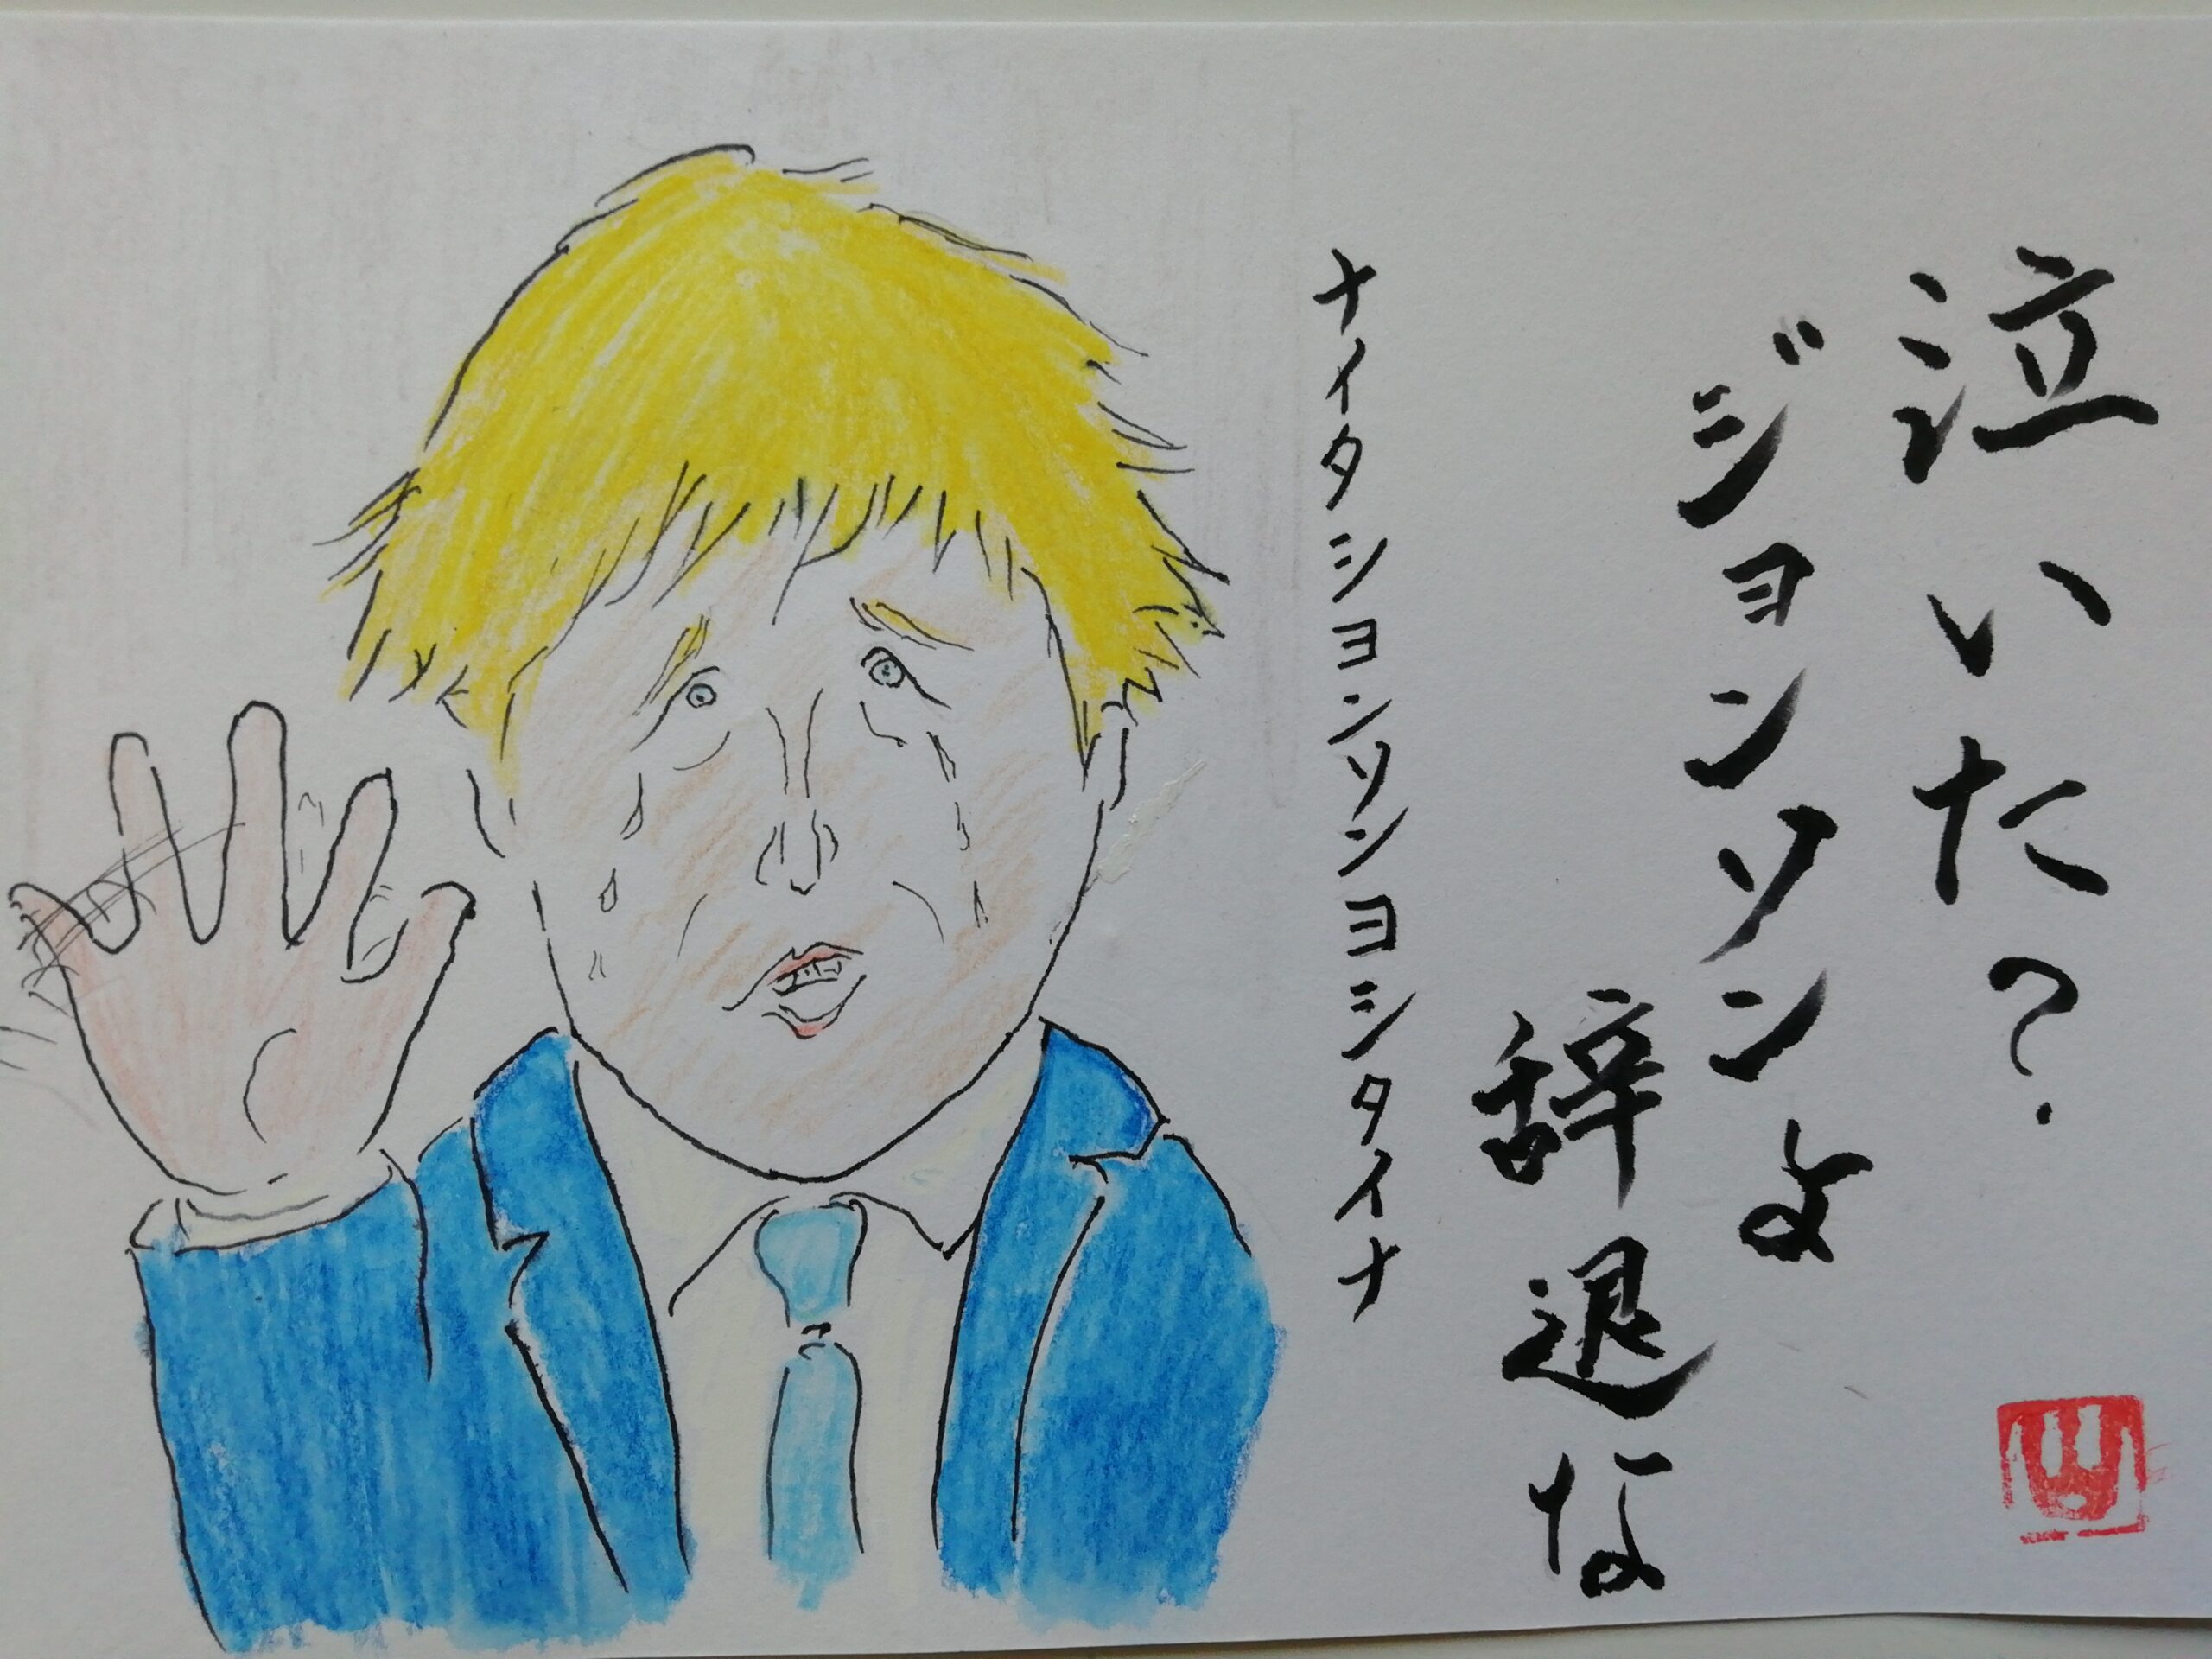 泣いた?
ジョンソンよ
辞退な
ナイタシヨンソンヨシタイナ